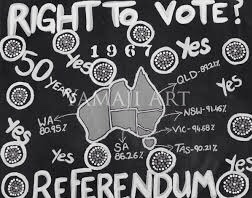 RIGHT TO VOTE?
1967
Yes
Yes
50
YEARS
Yes
QLD-89.21%
SAMAJI ART
NSW-91.46%
WA
80.95%
VIC-94.68%
SA
86.26%
TAS-90.21%
Yes
Yes
Yes
REFERENDUM